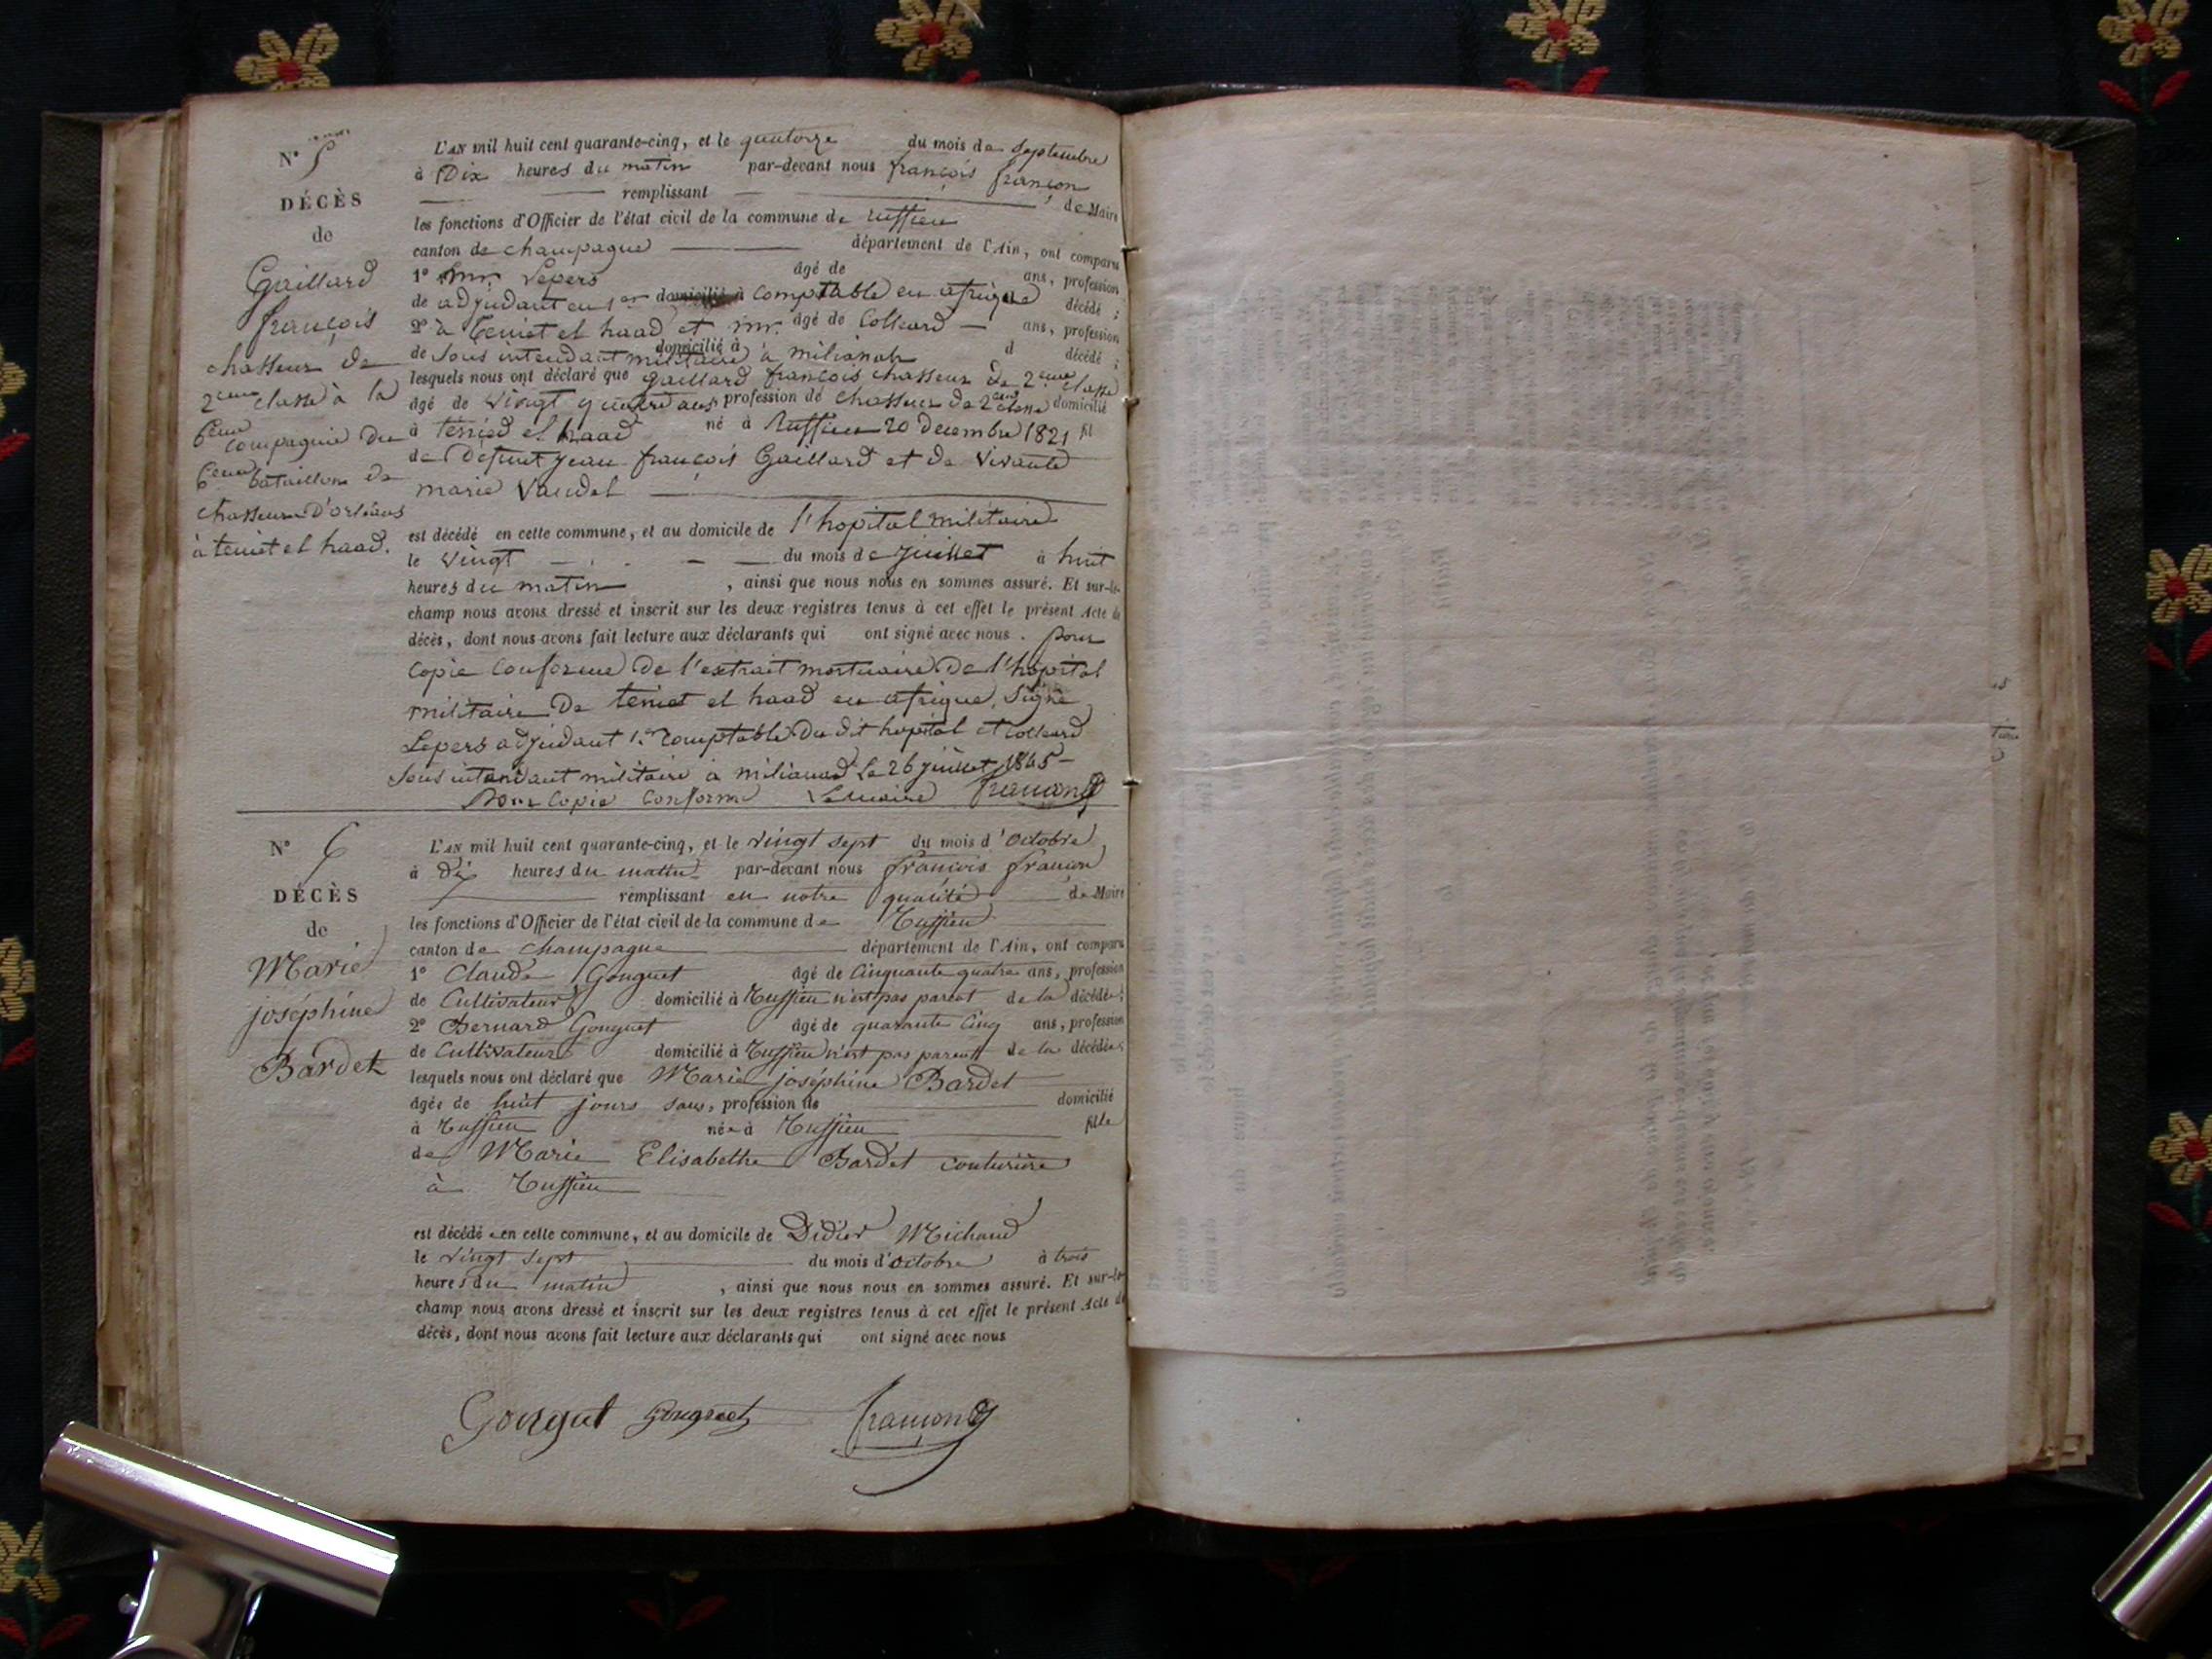 N° 5
DÉCÈS
de
Gaillard
françois
chasseur de
2eme classe à la
6eme compagnie du
6eme bataillon de
chasseurs d'orléans
à teniet el haad.
L'AN mil huit cent quarante-cinq, et le quatorze du mois de septembre
à Dix heures du matin par-devant nous françois françon
remplissant de Maire
les fonctions d'Officier de l'état civil de la commune de ruffieu
canton de champagne département de l'Ain, ont comparu
1° Mr. Lepers âgé de ans, profession
de adjudant en 1er domicilié à comptable en afrique décédé ;
2° à teniet el haad et mr. âgé de Colleard ans, profession
de sous intendant militaire domicilié à à milianah d décédé ;
lesquels nous ont déclaré que gaillard françois chasseur de 2eme classe
âgé de vingt quatre ans profession de chasseur de 2eme classe domicilié
à tenied el haad né à Ruffieu 20 decembre 1821 fil
de Defunt jean françois Gaillard et de vivante
marie Vaudel
est décédé en cette commune, et au domicile de l'hopital militaire
le vingt du mois de juillet à huit
heures du matin , ainsi que nous nous en sommes assuré. Et sur-le-
champ nous avons dressé et inscrit sur les deux registres tenus à cet effet le présent Acte de
décès, dont nous avons fait lecture aux déclarants qui ont signé avec nous . pour
copie conforme de l'extrait mortuaire de l'hopital
militaire De teniet el haad en afrique, Signé
Lepers adjudant 1er comptable du dit hopital et colleard
sous intendant militaire à milianad le 26 juillet 1845
Pour copie conforme Lemaire françon
N° 6
DÉCÈS
de
Marie
joséphine
Bardet
L'AN mil huit cent quarante-cinq, et le vingt sept du mois d'octobre
à dix heures du matin par-devant nous françois françon
remplissant en notre qualité de Maire
les fonctions d'Officier de l'état civil de la commune de Ruffieu
canton de champagne département de l'Ain, ont comparu
1° Claude Gonguet âgé de cinquante quatre ans, profession
de Cultivateur domicilié à Ruffieu n'est pas parent de la décédée ;
2° Bernard Gonguet âgé de quarante cinq ans, profession
de Cultivateur domicilié à Ruffieu n'est pas parent de la décédée ;
lesquels nous ont déclaré que Marie joséphine Bardet
âgée de huit jours sans, profession de domicilié
à Ruffieu née à Ruffieu fille
de Marie Elisabethe Bardet couturière
à Ruffieu
est décédée en cette commune, et au domicile de Didier Michaud
le vingt sept du mois d'octobre à trois
heures du matin , ainsi que nous nous en sommes assuré. Et sur-le-
champ nous avons dressé et inscrit sur les deux registres tenus à cet effet le présent Acte de
décès, dont nous avons fait lecture aux déclarants qui ont signé avec nous
Gonguet Gonguet françon